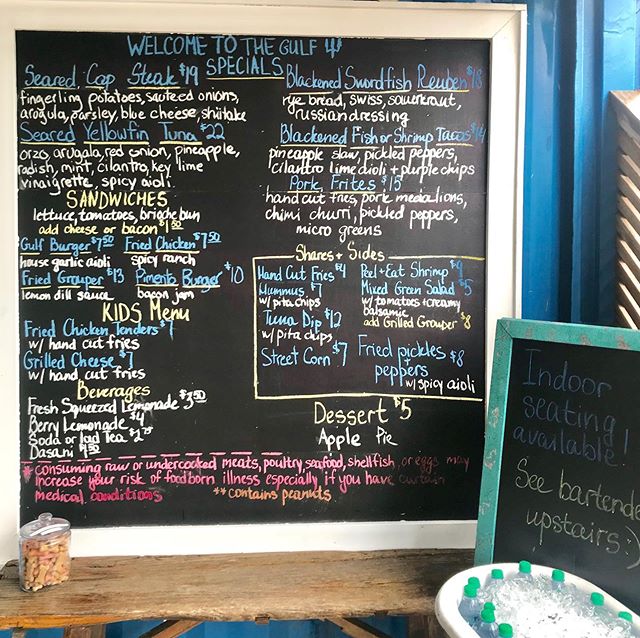 WELCOME TO THE GULF
SPECIALS
Seared Cap Steak $19
fingerling potatoes, sauteed onions,
arugula, parsley, blue cheese, shiitake
Seared Yellowfin Tuna $22
orzo, arugala, red onion, pineapple,
radish, mint, cilantro, key lime
vinaigrette, spicy aioli
SANDWICHES
lettuce, tomatoes, brioche bun
add cheese or bacon $1.50
Gulf Burger $7.50 Fried Chicken $7.50
house garlic aioli spicy ranch
Fried Grouper $13 Pimento Burger $10
lemon dill sauce bacon jam
KIDS Menu
Fried Chicken Tenders $7
w/ hand cut fries
Grilled Cheese $7
w/ hand cut fries
Beverages
Fresh Squeezed Lemonade $3.50
Berry Lemonade $4
Soda or Iced Tea $2.75
Dasani $1.50
Blackened Swordfish Reuben $18
rye bread, swiss, sauerkraut,
russian dressing
Blackened Fish or Shrimp Tacos $14
pineapple slaw, pickled peppers,
cilantro lime aioli + purple chips
Pork Frites $15
hand cut fries, pork medallions,
chimi churri, pickled peppers,
micro greens
Shares + Sides
Hand Cut Fries $4
Hummus $7
w/ pita chips
Tuna Dip $12
w/ pita chips
Street Corn $7
Peel + Eat Shrimp $9
Mixed Green Salad $5
w/ tomatoes + creamy
balsamic
add Grilled Grouper $8
Fried pickles + $8
peppers
w/ spicy aioli
Dessert $5
Apple Pie
* consuming raw or undercooked meats, poultry, seafood, shellfish, or eggs may
increase your risk of foodborn illness especially if you have curtain
medical conditions ** contains peanuts
Indoor
seating
available!
See bartende
upstairs :)